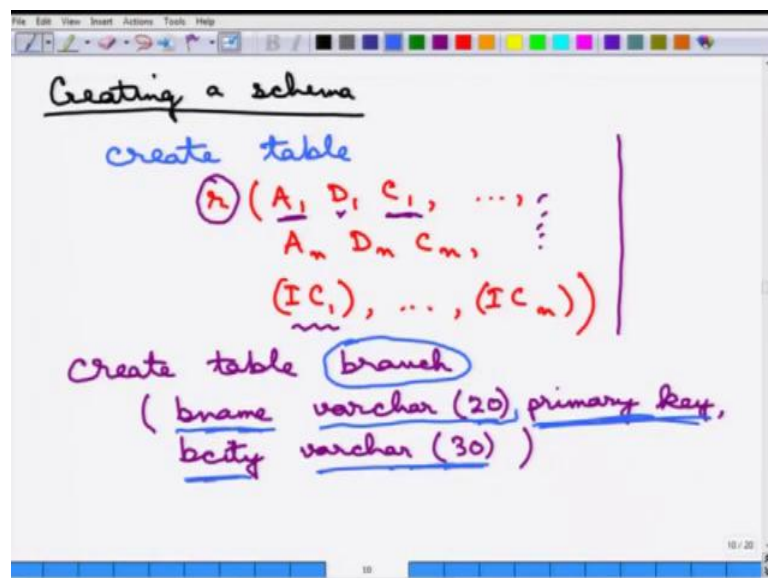 File Edit View Insert Actions Tools Help
B I
Creating a schema
create table
r ( A₁ D₁ C₁, ...,
Aₙ Dₙ Cₙ,
(IC₁), ..., (ICₙ))
create table branch
( bname varchar (20), primary key,
bcity varchar (30) )
10 / 20
10